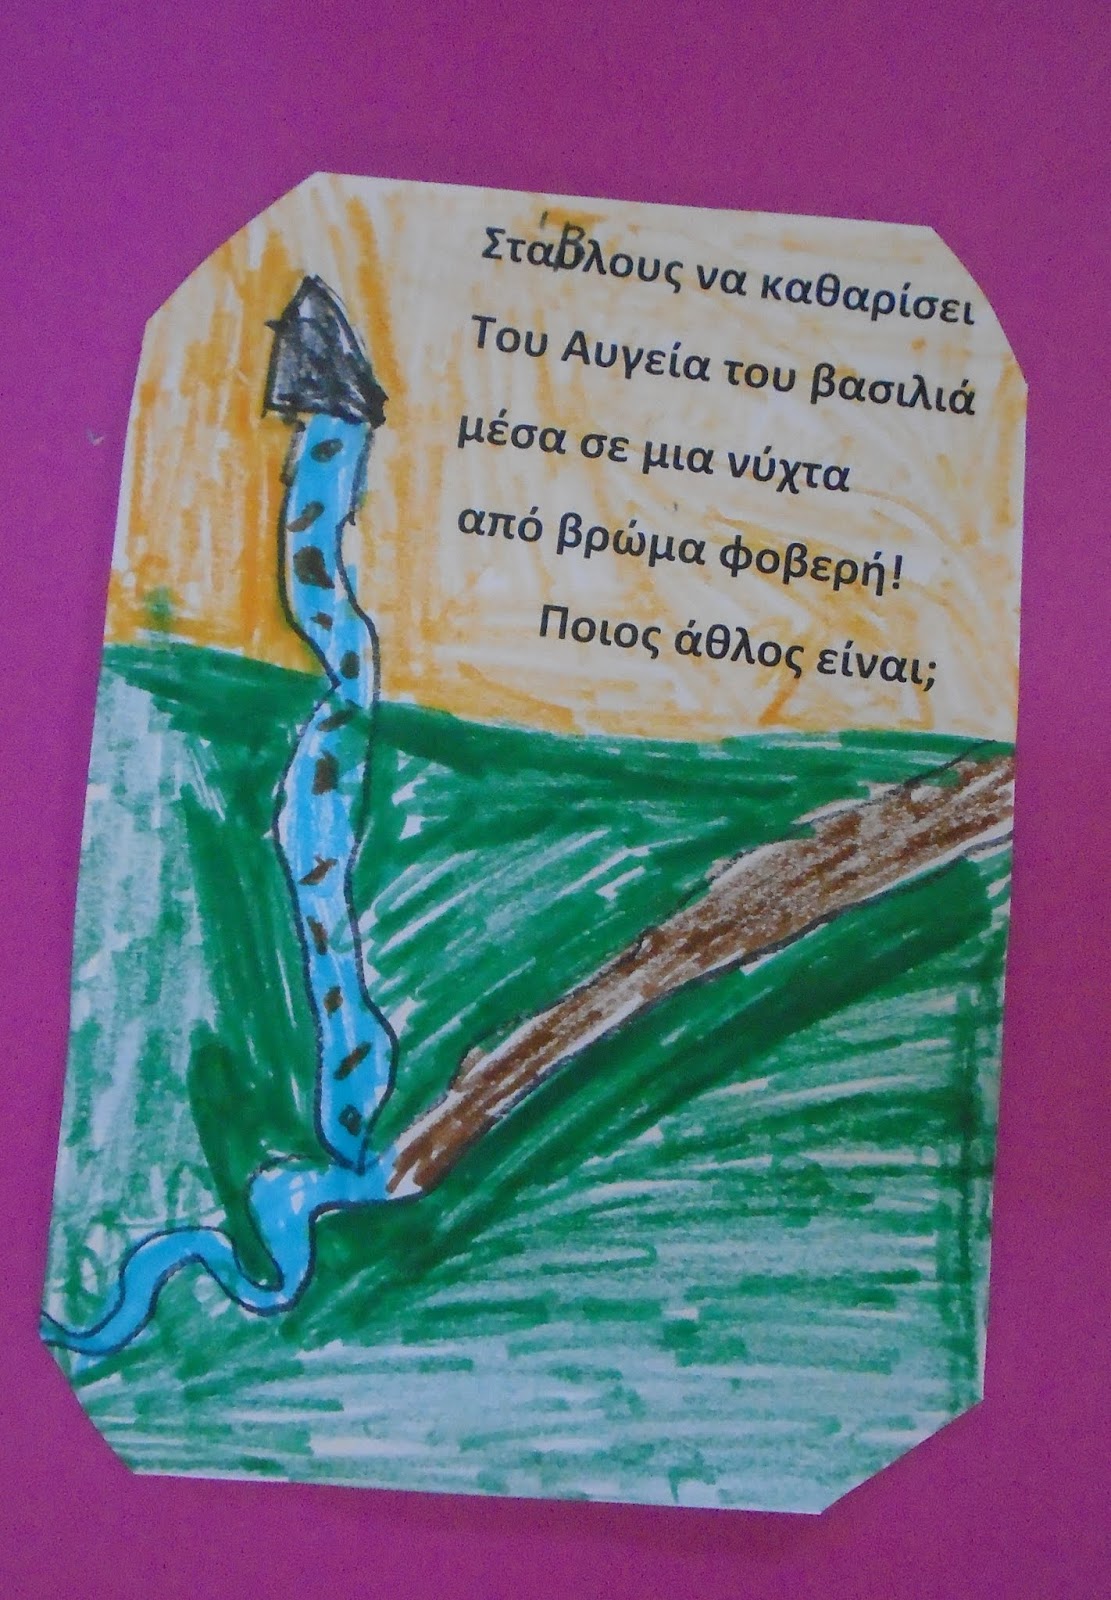 Στάβλους να καθαρίσει
Του Αυγεία του βασιλιά
μέσα σε μια νύχτα
από βρώμα φοβερή!
Ποιος άθλος είναι;